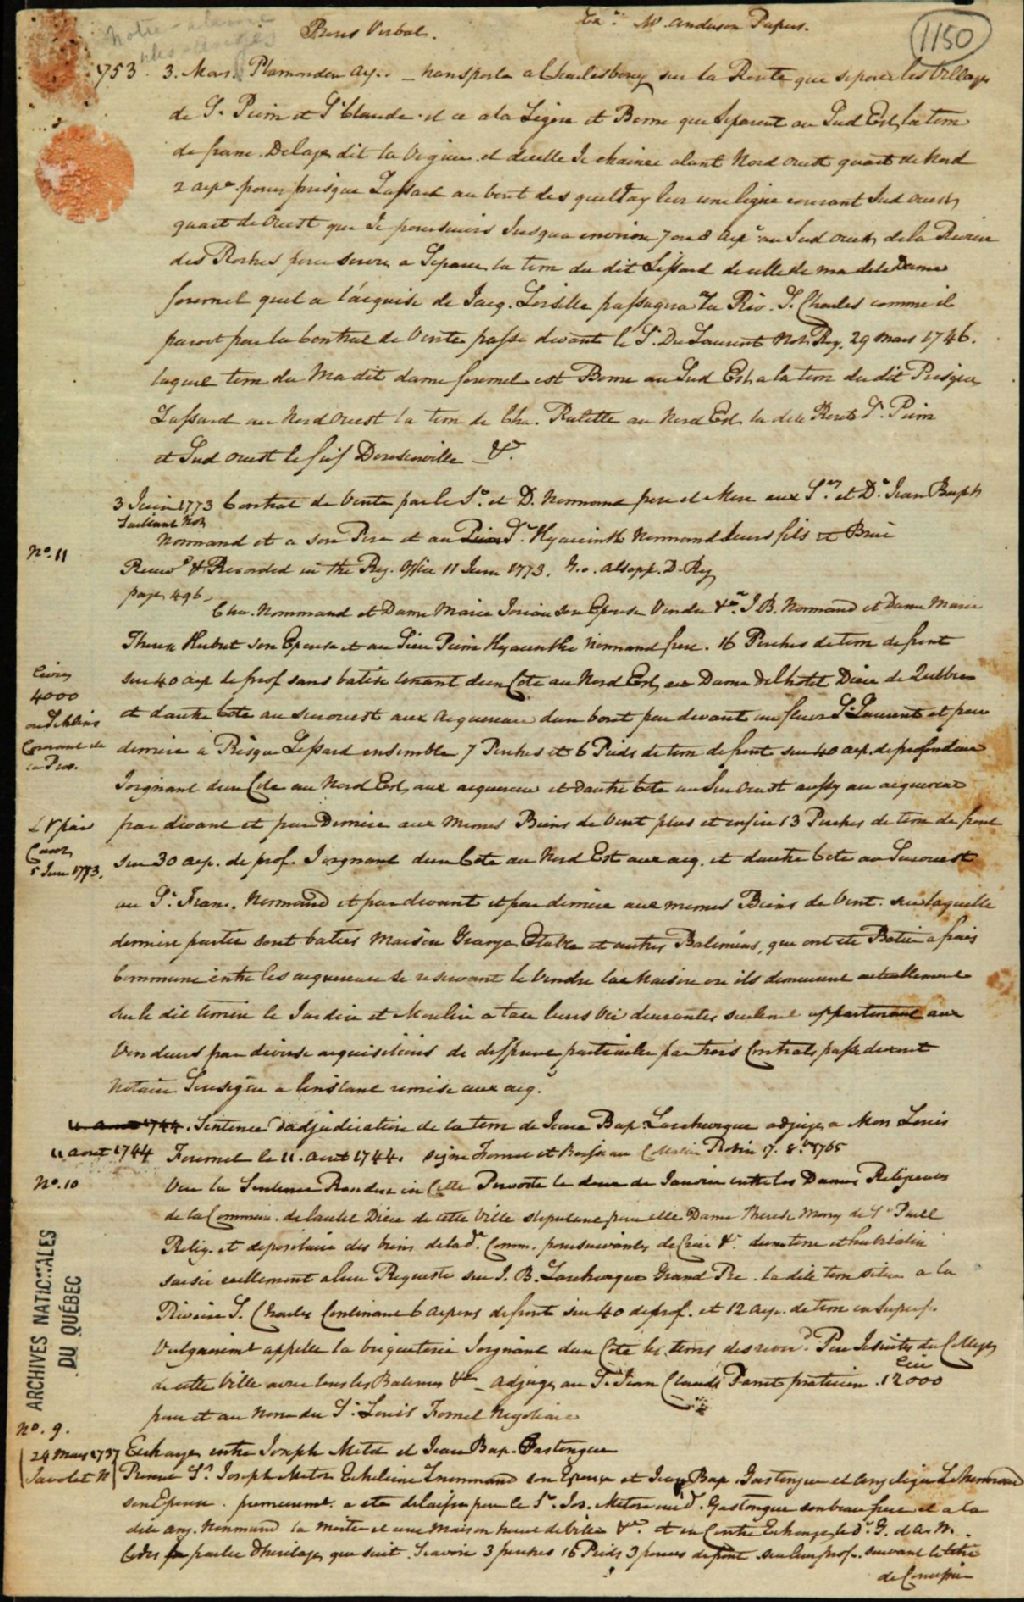 Proces Verbal.
Mr. Anderson Papers.
1150
1753. 3. Mars. Plamondon Arp. transporta a Charlesbourg sur la Route que separe les Villages
de St. Pierre et St. Claude et ce a la Ligne et Borne que separent au Sud Est la terre
de franc. Delage dit la Vigueur et d'icelle Je chainee alant Nord ouest quart de Nord
2 arp. pour presque Lessard au bout des quels J'ay leve une ligne courant Sud ouest
quart de ouest que Je poursuivis Jusqua environ 7 ou 8 arp. au Sud ouest de la Riviere
des Roches pour servir a Separer la terre du dit Lessard de celle de ma dite Dame
fornel quel a l'acquise de Jacq. Loiselle passager la Riv. St. Charles comme il
paroit par la Contrat de Vente passe devant le Sr. Du Laurent Not. Roy. 29 Mars 1746.
laquel terre du Ma dit dame fornel est Borne au Sud Est a la terre du dit Presque
Lessard au Nord Ouest la terre de Cha. Ratelle au Nord Est la dite Route St. Pierre
et Sud ouest le fief &c.
3 Juin 1773 Contrat de Vente par le Sr. et D. Normand pere et Mere aux Srs. et De. Jean Bapt
Saillant Not.
Normand et a son Pere et au Sr. Hyacinth Normand leurs fils et Brue
No. 11
Receivd. & Recorded in the Reg. Office 11 June 1773. Geo. Alsopp. D. Reg
page 496.
Cha. Normmand et Dame Marie son Epouse Vendre &c. J B. Normand et Dame Marie
Therese Hubert son Epouse et au Sieur Pierre Hyacinthe Normand frere. 16 Perches de terre de front
sur 40 arp. de prof sans batisse tenant d'un Cote au Nord Est aux Dames de l'hotel Dieu de Quebec
4000
et d'autre Cote au surouest aux acquereurs d'un bout par devant au fleuve St. Laurent et par
derriere a Presque Lessard ensemble 7 Perches et 6 Pieds de terre de front sur 40 arp. de profondeur
Joignant d'un Cote au Nord Est aux acquereurs et d'autre Cote au Sur Ouest aussy au acquereurs
par devant et par Derriere aux Memes Biens de Vent plus et enfin 13 Perches de terre de front
5 Juin 1773.
sur 30 arp. de prof. Joignant d'un Cote au Nord Est aux acq. et d'autre Cote au Surouest
au Sr. Fran. Normand et par devant et par derriere aux memes Biens de Vent. sur laquelle
derniere partie sont baties Maison Grange Etable et autres Batimens, que ont ete Batie a frais
Commune entre les acquereurs se reservant le Vendre la Maison ou ils demeurent actuellement
sur le dit terrein le Jardin et Moulin a Tan leurs Vie durante seulement appartenant aux
Vendeurs par diverse acquisitions de differens particulier par trois Contrats passe devant
Notaire Soussigne a l'instant remise aux acq.
11 aout 1744. Sentence d'adjudication de la terre de Jean Bap. Larchevesque adjuge a Mon Louis
11 aout 1744 Fournel le 11. aout 1744. signe
No. 10
Vue la Sentence Rendue en Cette Prevoste le deux de Janvier entre les Dames Religieuses
de la Commun. de l'autel Dieu de cette Ville stipulant par elle Dame Therese Mony de St. Paul
Relig. et depositaire des biens de la de. Comm. poursuivante de Criée &c. d'une terre et habitation
saisie reellement a leur Requeste sur J. B. Larchevesque Grand Pre. la dite terre situee a la
Riviere St. Charles Contenant 6 arpens de front sur 40 de prof. et 12 arp. de terre en Superf.
Vulgairement appelle la briqueterie Joignant d'un Cote les terres des revd. Peres Jesuites du College
de cette Ville avec tous les Batimens &c adjuge au Sr. Jean Claude Panet praticien 12000
pour et au Nom du Sr. Louis Fornel Negotiant
No. 9.
24 Mars 1737 Echange entre Joseph Metot et Jean Bap. Gastongue
son Epouse. premierement a ete delaisse par le Sr. Jos. Metot aud. Gastongue son beau frere et a la
dite Ang. Normand la Moitie et une Maison &c. et en Contre Echange le d. G. et A. N.
Cedes partie d'heritage que suit. Scavoir 3 perches 16 Pieds 3 pouces de front sur leur prof. suivant le titre
de Concession
ARCHIVES NATIONALES
DU QUÉBEC